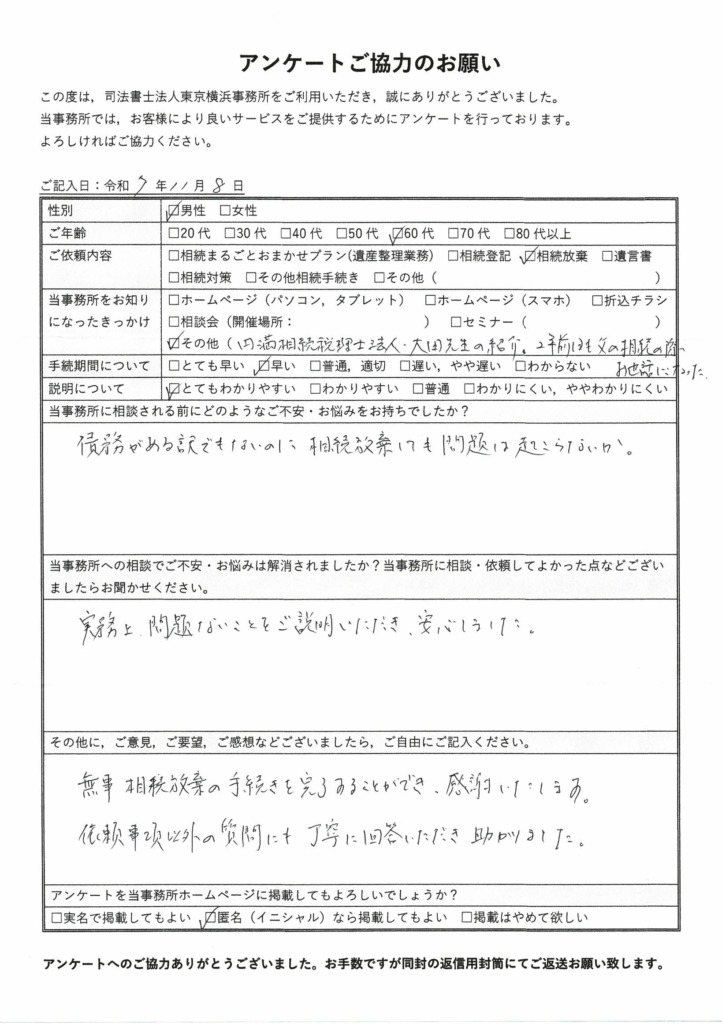 アンケートご協力のお願い
この度は，司法書士法人東京横浜事務所をご利用いただき，誠にありがとうございました。
当事務所では，お客様により良いサービスをご提供するためにアンケートを行っております。
よろしければご協力ください。
ご記入日：令和7年11月8日
性別 ☑男性 □女性
ご年齢 □20代 □30代 □40代 □50代 ☑60代 □70代 □80代以上
ご依頼内容 □相続まるごとおまかせプラン(遺産整理業務) □相続登記 ☑相続放棄 □遺言書
□相続対策 □その他相続手続き □その他（ ）
当事務所をお知り □ホームページ（パソコン，タブレット） □ホームページ（スマホ） □折込チラシ
になったきっかけ □相談会（開催場所： ） □セミナー（ ）
☑その他（円満相続税理士法人・大田先生の紹介。2年前は父の相続の際に
お世話になった。
手続期間について □とても早い ☑早い □普通，適切 □遅い，やや遅い □わからない
説明について ☑とてもわかりやすい □わかりやすい □普通 □わかりにくい，ややわかりにくい
当事務所に相談される前にどのようなご不安・お悩みをお持ちでしたか？
債務がある訳でもないのに相続放棄しても問題は起こらないか。
当事務所への相談でご不安・お悩みは解消されましたか？当事務所に相談・依頼してよかった点などござい
ましたらお聞かせください。
実務上、問題ないことをご説明いただき、安心しました。
その他に，ご意見，ご要望，ご感想などございましたら，ご自由にご記入ください。
無事相続放棄の手続きを完了することができ、感謝いたします。
依頼事項以外の質問にも丁寧に回答いただき助かりました。
アンケートを当事務所ホームページに掲載してもよろしいでしょうか？
□実名で掲載してもよい ☑匿名（イニシャル）なら掲載してもよい □掲載はやめて欲しい
アンケートへのご協力ありがとうございました。お手数ですが同封の返信用封筒にてご返送お願い致します。